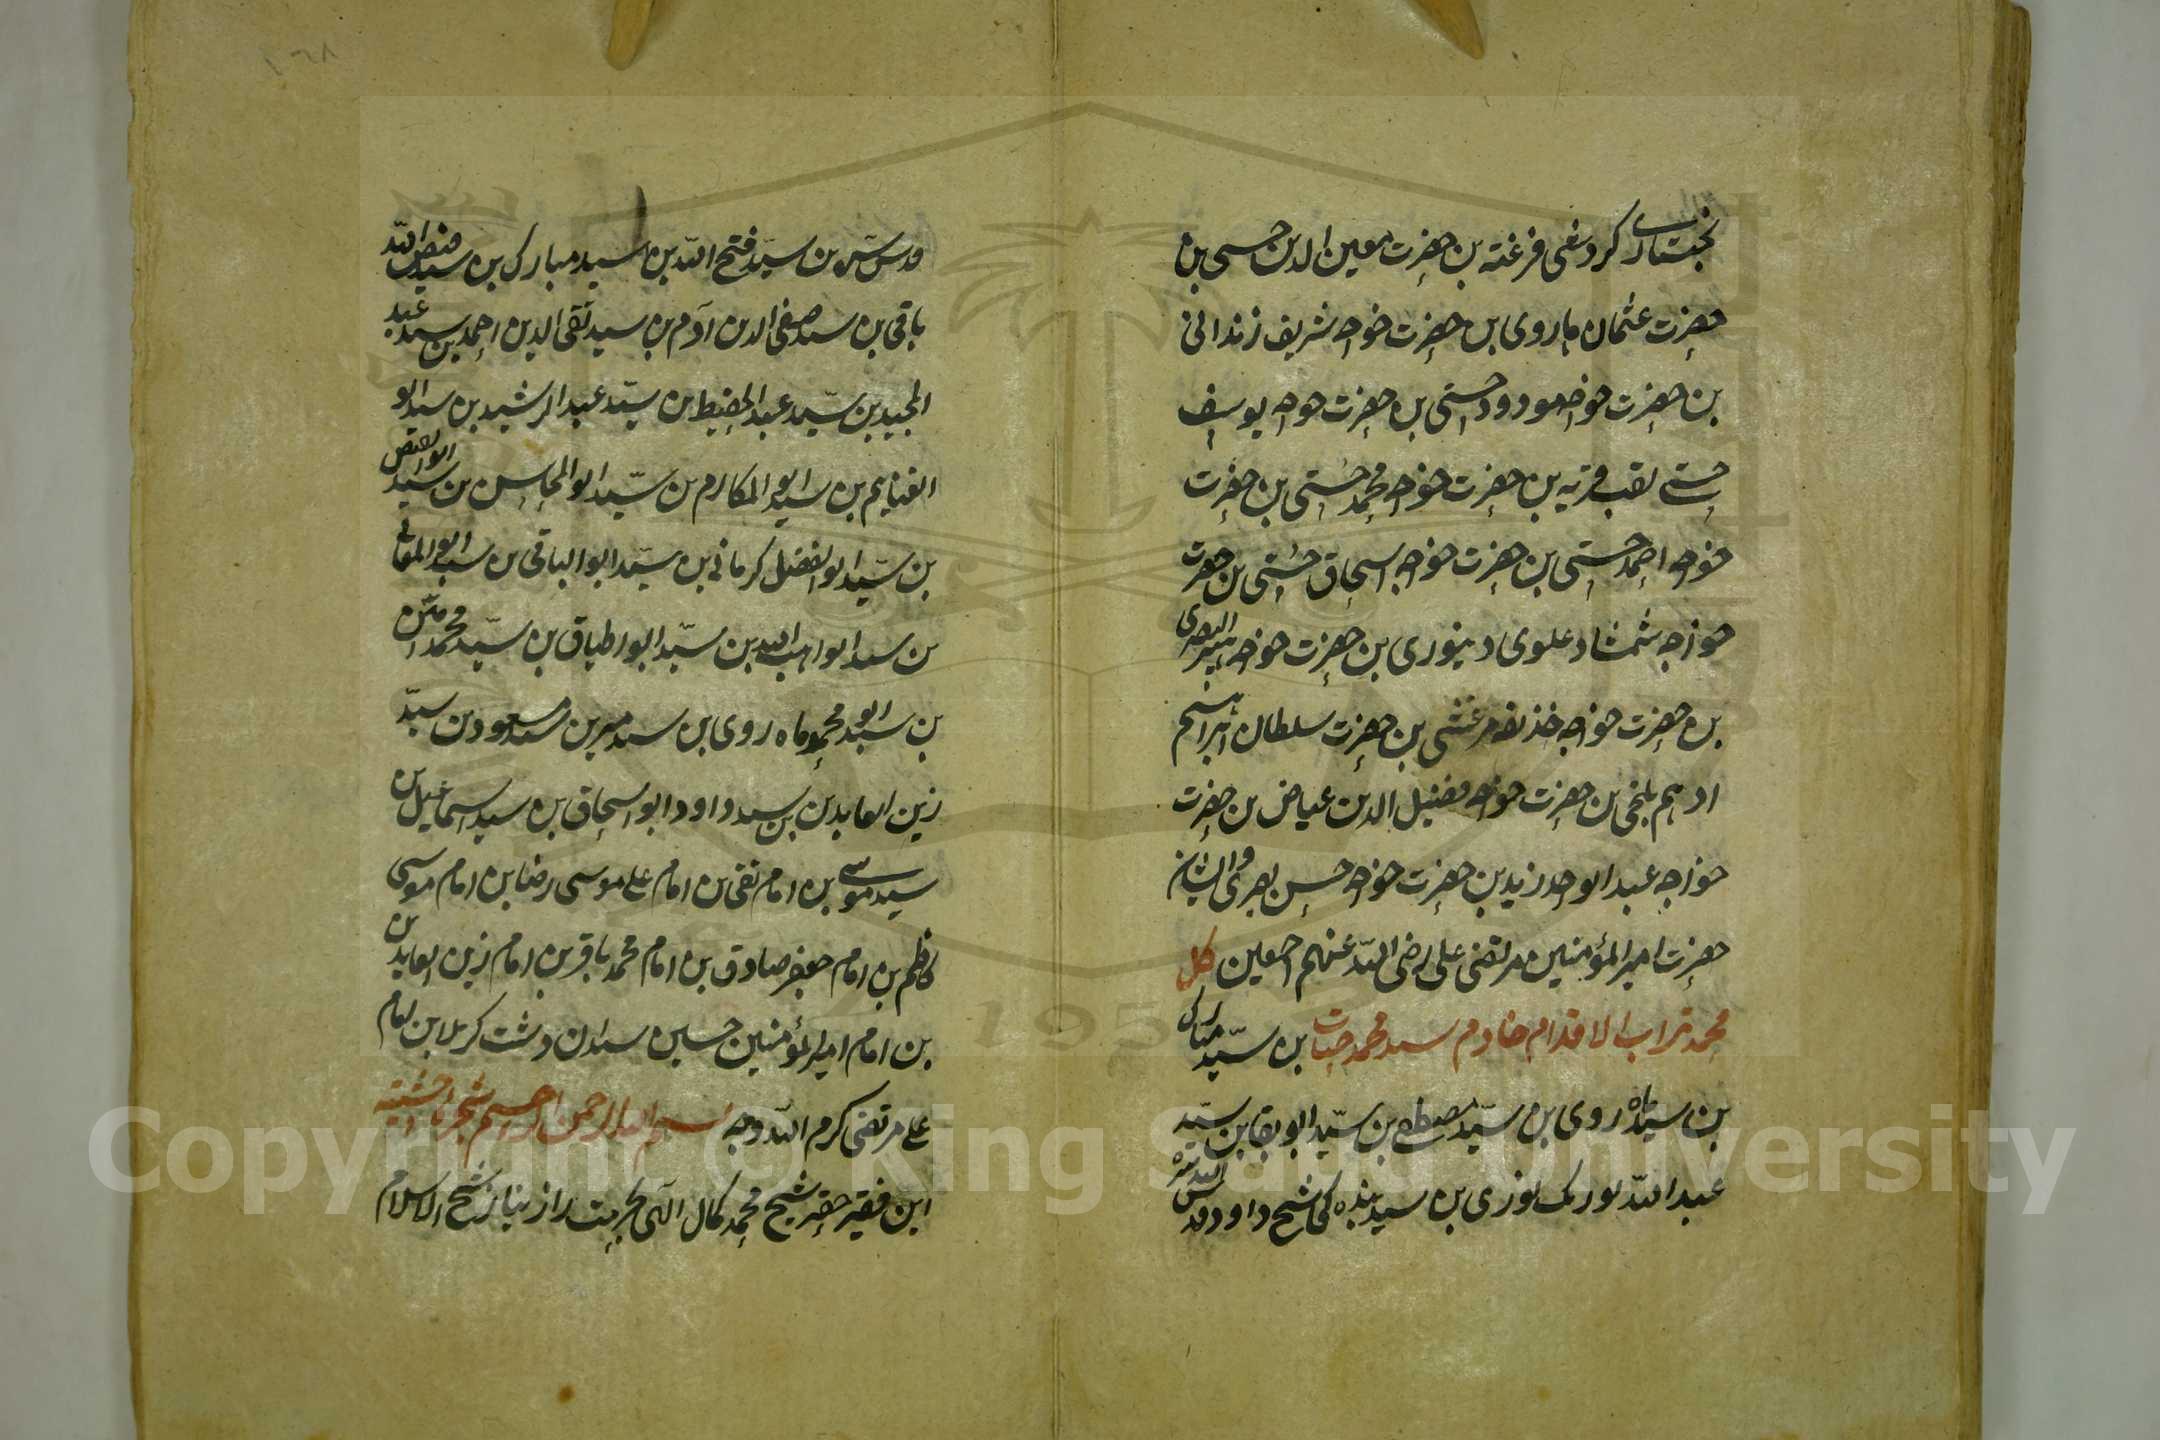 بن حضرت معین الدین حسن بن
حضرت عثمان هاروی بن حضرت خواجه شریف زندانی
بن حضرت خواجه مودود چشتی بن حضرت خواجه یوسف
چشتی لقب قریه بن حضرت خواجه محمد چشتی بن حضرت
خواجه احمد چشتی بن حضرت خواجه اسحاق چشتی بن حضرت
خواجه شمشاد علوی دینوری بن حضرت خواجه هبیر البصری
بن حضرت خواجه خذیفه مرغشی بن حضرت سلطان ابراهیم
ادهم بلخی بن حضرت خواجه فضیل الدین عیاض بن حضرت
خواجه عبد الوحد زید بن حضرت خواجه حسن بصری والیشان
حضرت امیر المؤمنین مرتضی علی رضی الله عنهم اجمعین کل
محمد تراب الاقدام خادم سید محمد حیات بن سید مبارک
بن سید ماه روی بن سید مصطفے بن سید ابو بقا بن سید
عبد الله نورنک نوری بن سید بنده کی شیخ داود قدس الله سره
قدس سره بن سید فتح الله بن سید مبارک بن سید فیض الله
باقی بن سید صفی الدین آدم بن سید تقی الدین احمد بن سید عبد
المجید بن سید عبد الحفیظ بن سید عبد الرشید بن سید ابو
الغنایم بن سید ابو المکارم بن سید ابو المحاسن بن سید ابو الفیض
بن سید ابو الفضل کرمانی بن سید ابو الباقی بن سید ابو المعالی
بن سید ابو اهب الله بن سید ابو اطیاق بن سید محمد
بن سید ابو محمد ماه روی بن سید میر بن سید مسعود بن سید
زین العابدین بن سید داود ابو اسحاق بن سید اسماعیل بن
سید موسے بن امام تقی بن امام علے موسی رضا بن امام موسی
کاظم بن امام جعفر صادق بن امام محمد باقر بن امام زین العابدین
بن امام امیر المؤمنین حسین سیدان دشت کربلا بن امام
علے مرتضی کرم الله وجه بسم الله الرحمن الرحیم شجره چشتیه
این فقیر حقیر شیخ محمد کمال الهی بحرمت راز نیاز شیخ الاسلام
Copyright © King Saud University
195